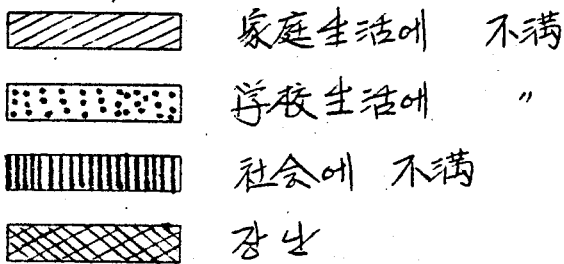 家庭生活에 不満
学校生活에 〃
社会에 不満
장난